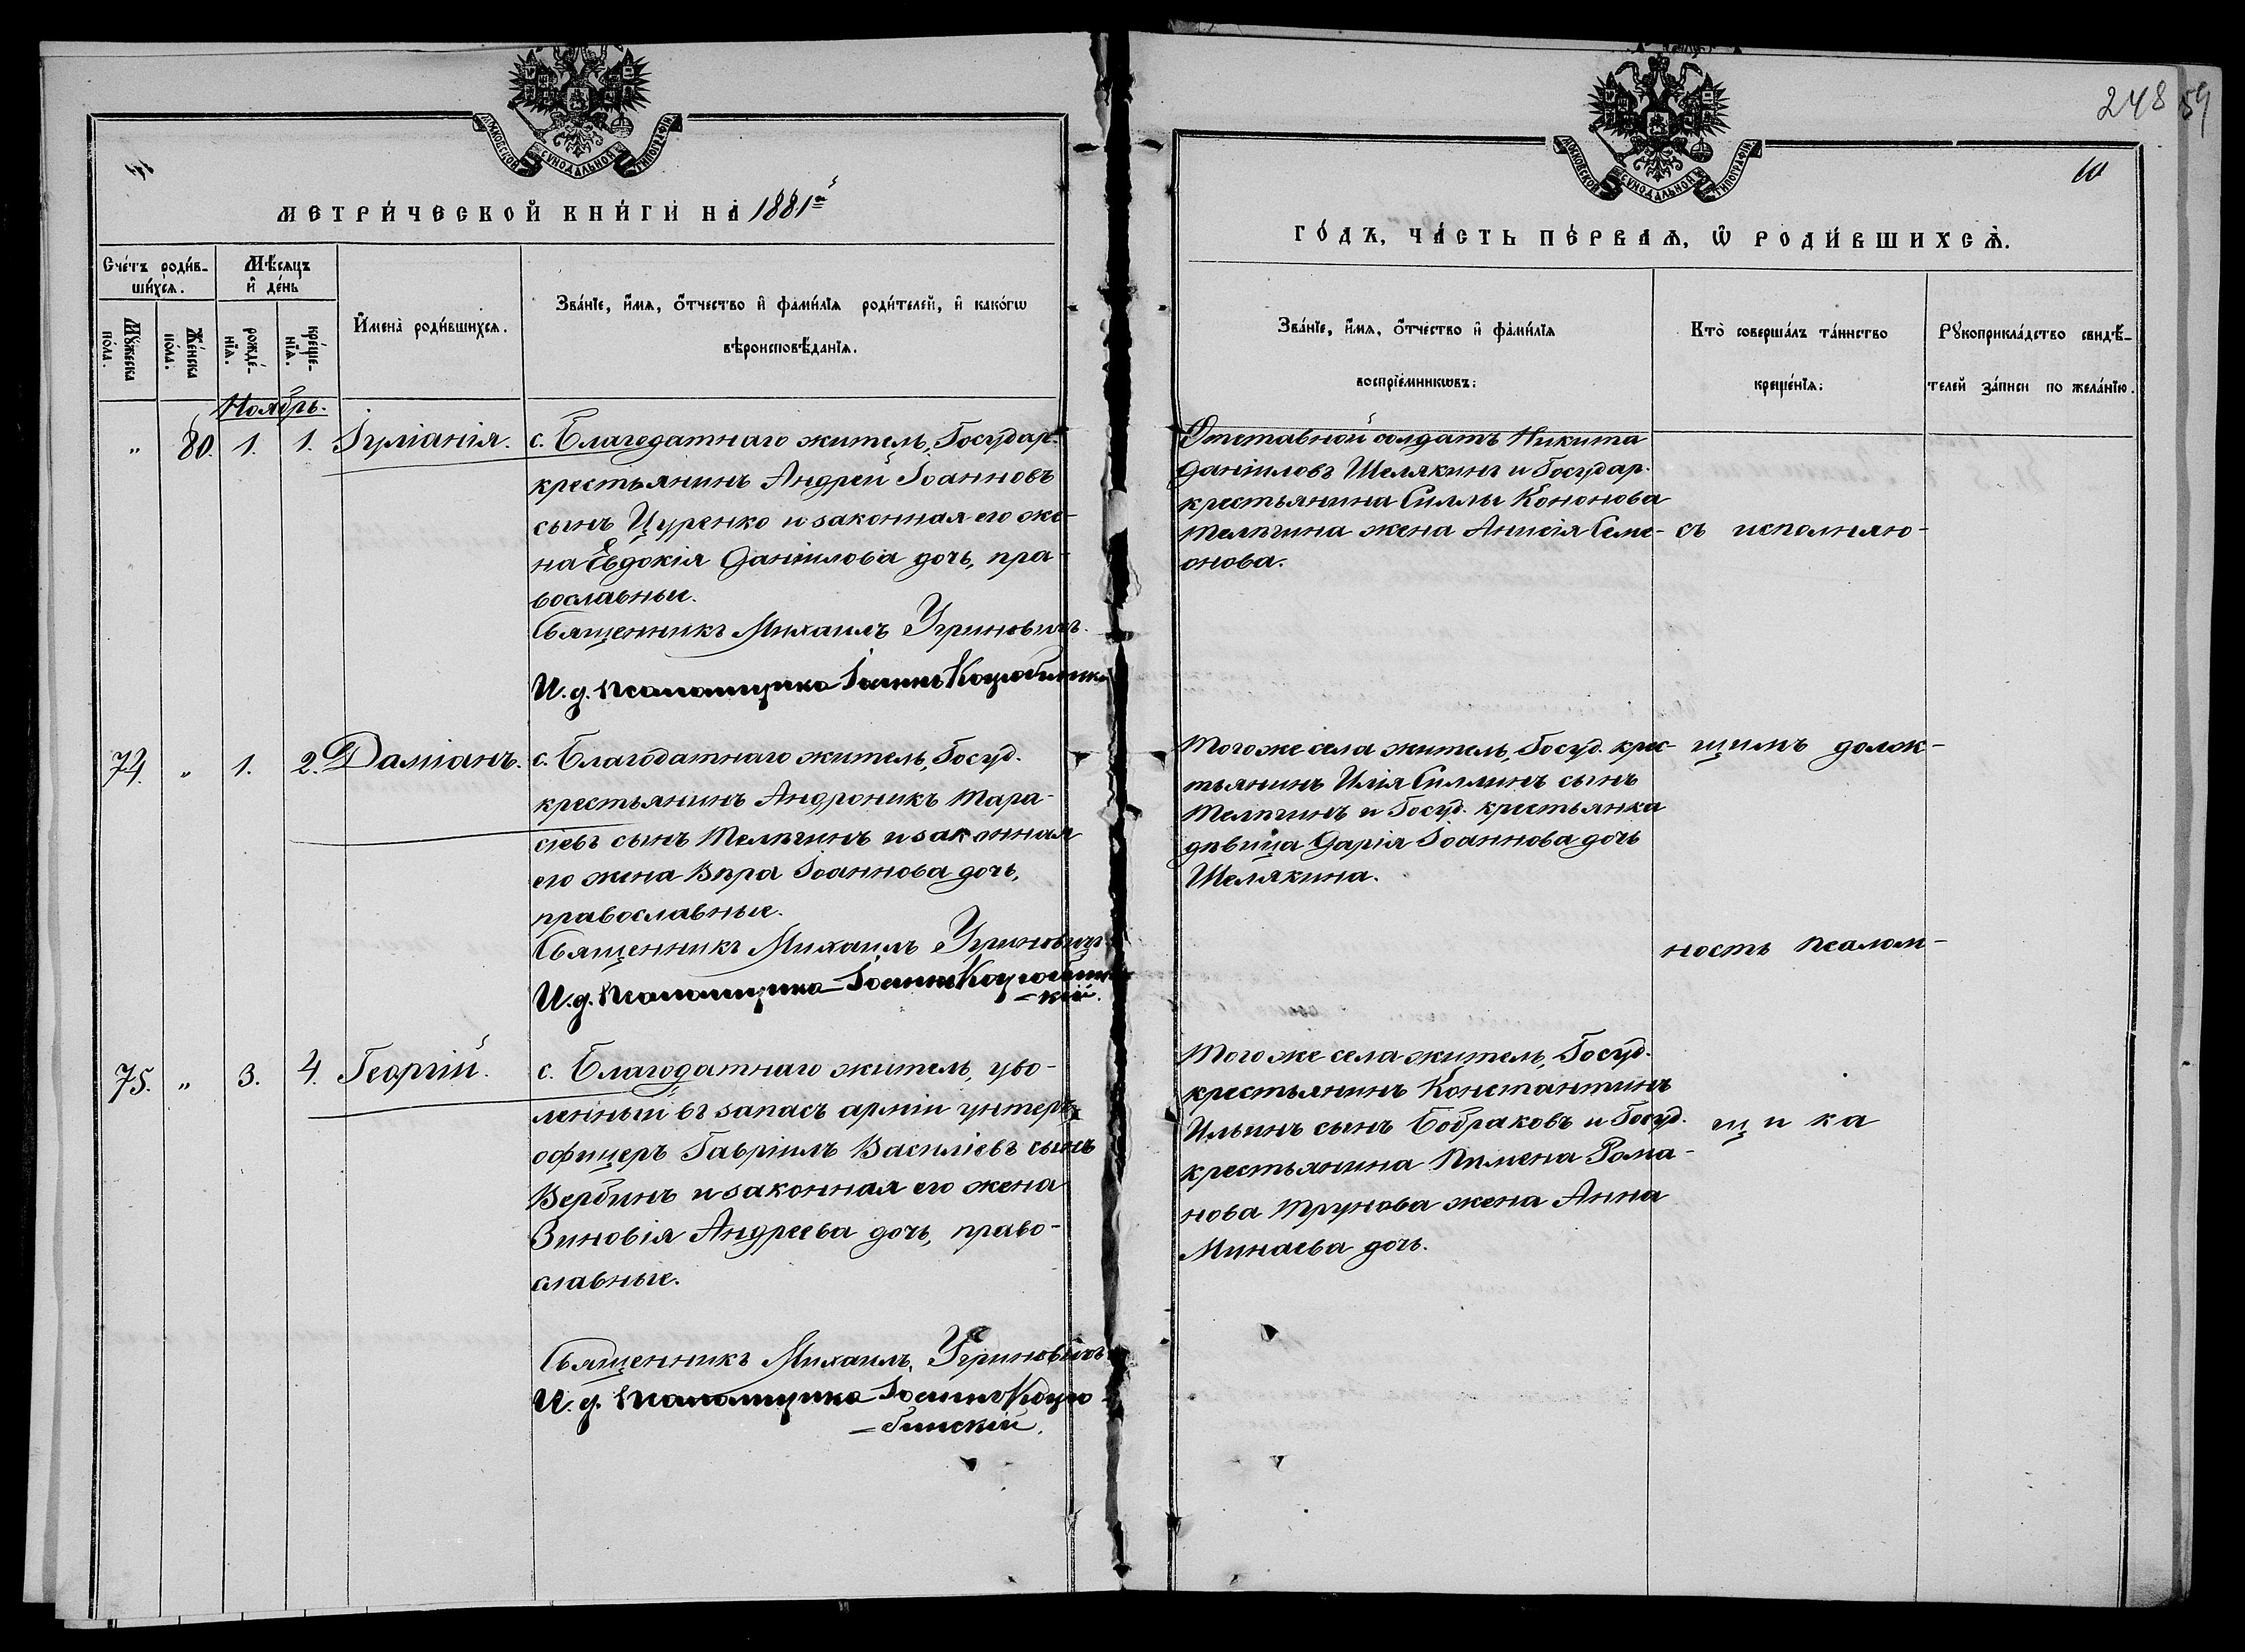 248 59
10
МОСКОВСКОЙ СѴНОДАЛЬНОЙ ТИПОГРАФІИ
МОСКОВСКОЙ СѴНОДАЛЬНОЙ ТИПОГРАФІИ
МЕТРИ́ЧЕСКОЙ КНИ́ГИ НА̀ 1881й
ГО́ДЪ, ЧА́СТЬ ПЕ́РВАЯ, Ѡ РОДИ́ВШИХСЯ.
Сче́тъ роди́в-
ши́хся.
Мѣ́сяцъ
и҆ де́нь
Мꙋ́жеска по́ла.
Же́нска по́ла.
рожде́-нїя.
креще́-нїя.
И҆мена̀ роди́вшихся.
Зва́нїе, и҆́мя, ѻ҆́тчество и҆ фами́лїя роди́телей, и҆ како́гѡ
вѣроисповѣ́данїя.
Зва́нїе, и҆́мя, ѻ҆́тчество и҆ фами́лїя
воспрїе́мникѡвъ:
Кто̀ соверша́лъ та́инство
креще́нїя:
Рꙋкоприкла́дство свидѣ́-
телей за́писи по жела́нїю.
Ноябрь.
„ 80. 1. 1. Іуліанія.
с. Благодатнаго житель, Государ.
крестьянинъ Андрей Іоанновъ
сынъ Цуренко и законная его же-
на Евдокія Даніилова дочь, пра-
вославные.
Священникъ Михаилъ Угриновичъ.
И. д. псаломщика Іоаннъ Коцюбинскій
Отставной солдатъ Никита
Даніиловъ Шелякинъ и Государ.
крестьянина Силлы Кононова
Телѣгина жена Анисія Семе-
онова.
съ исполняю-
74. „ 1. 2. Даміанъ.
с. Благодатнаго житель, Госуд.
крестьянинъ Андроникъ Тара-
сіевъ сынъ Телѣгинъ и законная
его жена Вѣра Іоаннова дочь,
православные.
Священникъ Михаилъ Угриновичъ
И. д. Псаломщика Іоаннъ Коцюбин-
-скій.
Того же села житель, Госуд. крес-
тьянинъ Илія Силлинъ сынъ
Телѣгинъ и Госуд. крестьянка
дѣвица Дарія Іоаннова дочь
Шелякина.
щимъ долж-
ность псалом-
75. „ 3. 4. Георгій.
с. Благодатнаго житель, уво-
ленный въ запасъ арміи унтеръ
офицеръ Гавріилъ Василіевъ сынъ
Вербинъ и законная его жена
Зиновія Андреева дочь, право-
славные.
Священникъ Михаилъ Угриновичъ
И. д. Псаломщика Іоаннъ Коцю-
-бинскій.
Того же села житель, Госуд.
крестьянинъ Константинъ
Ильинъ сынъ Бобраковъ и Госуд.
крестьянина Пимена Рома-
нова Трунова жена Анна
Минаева дочь.
щика